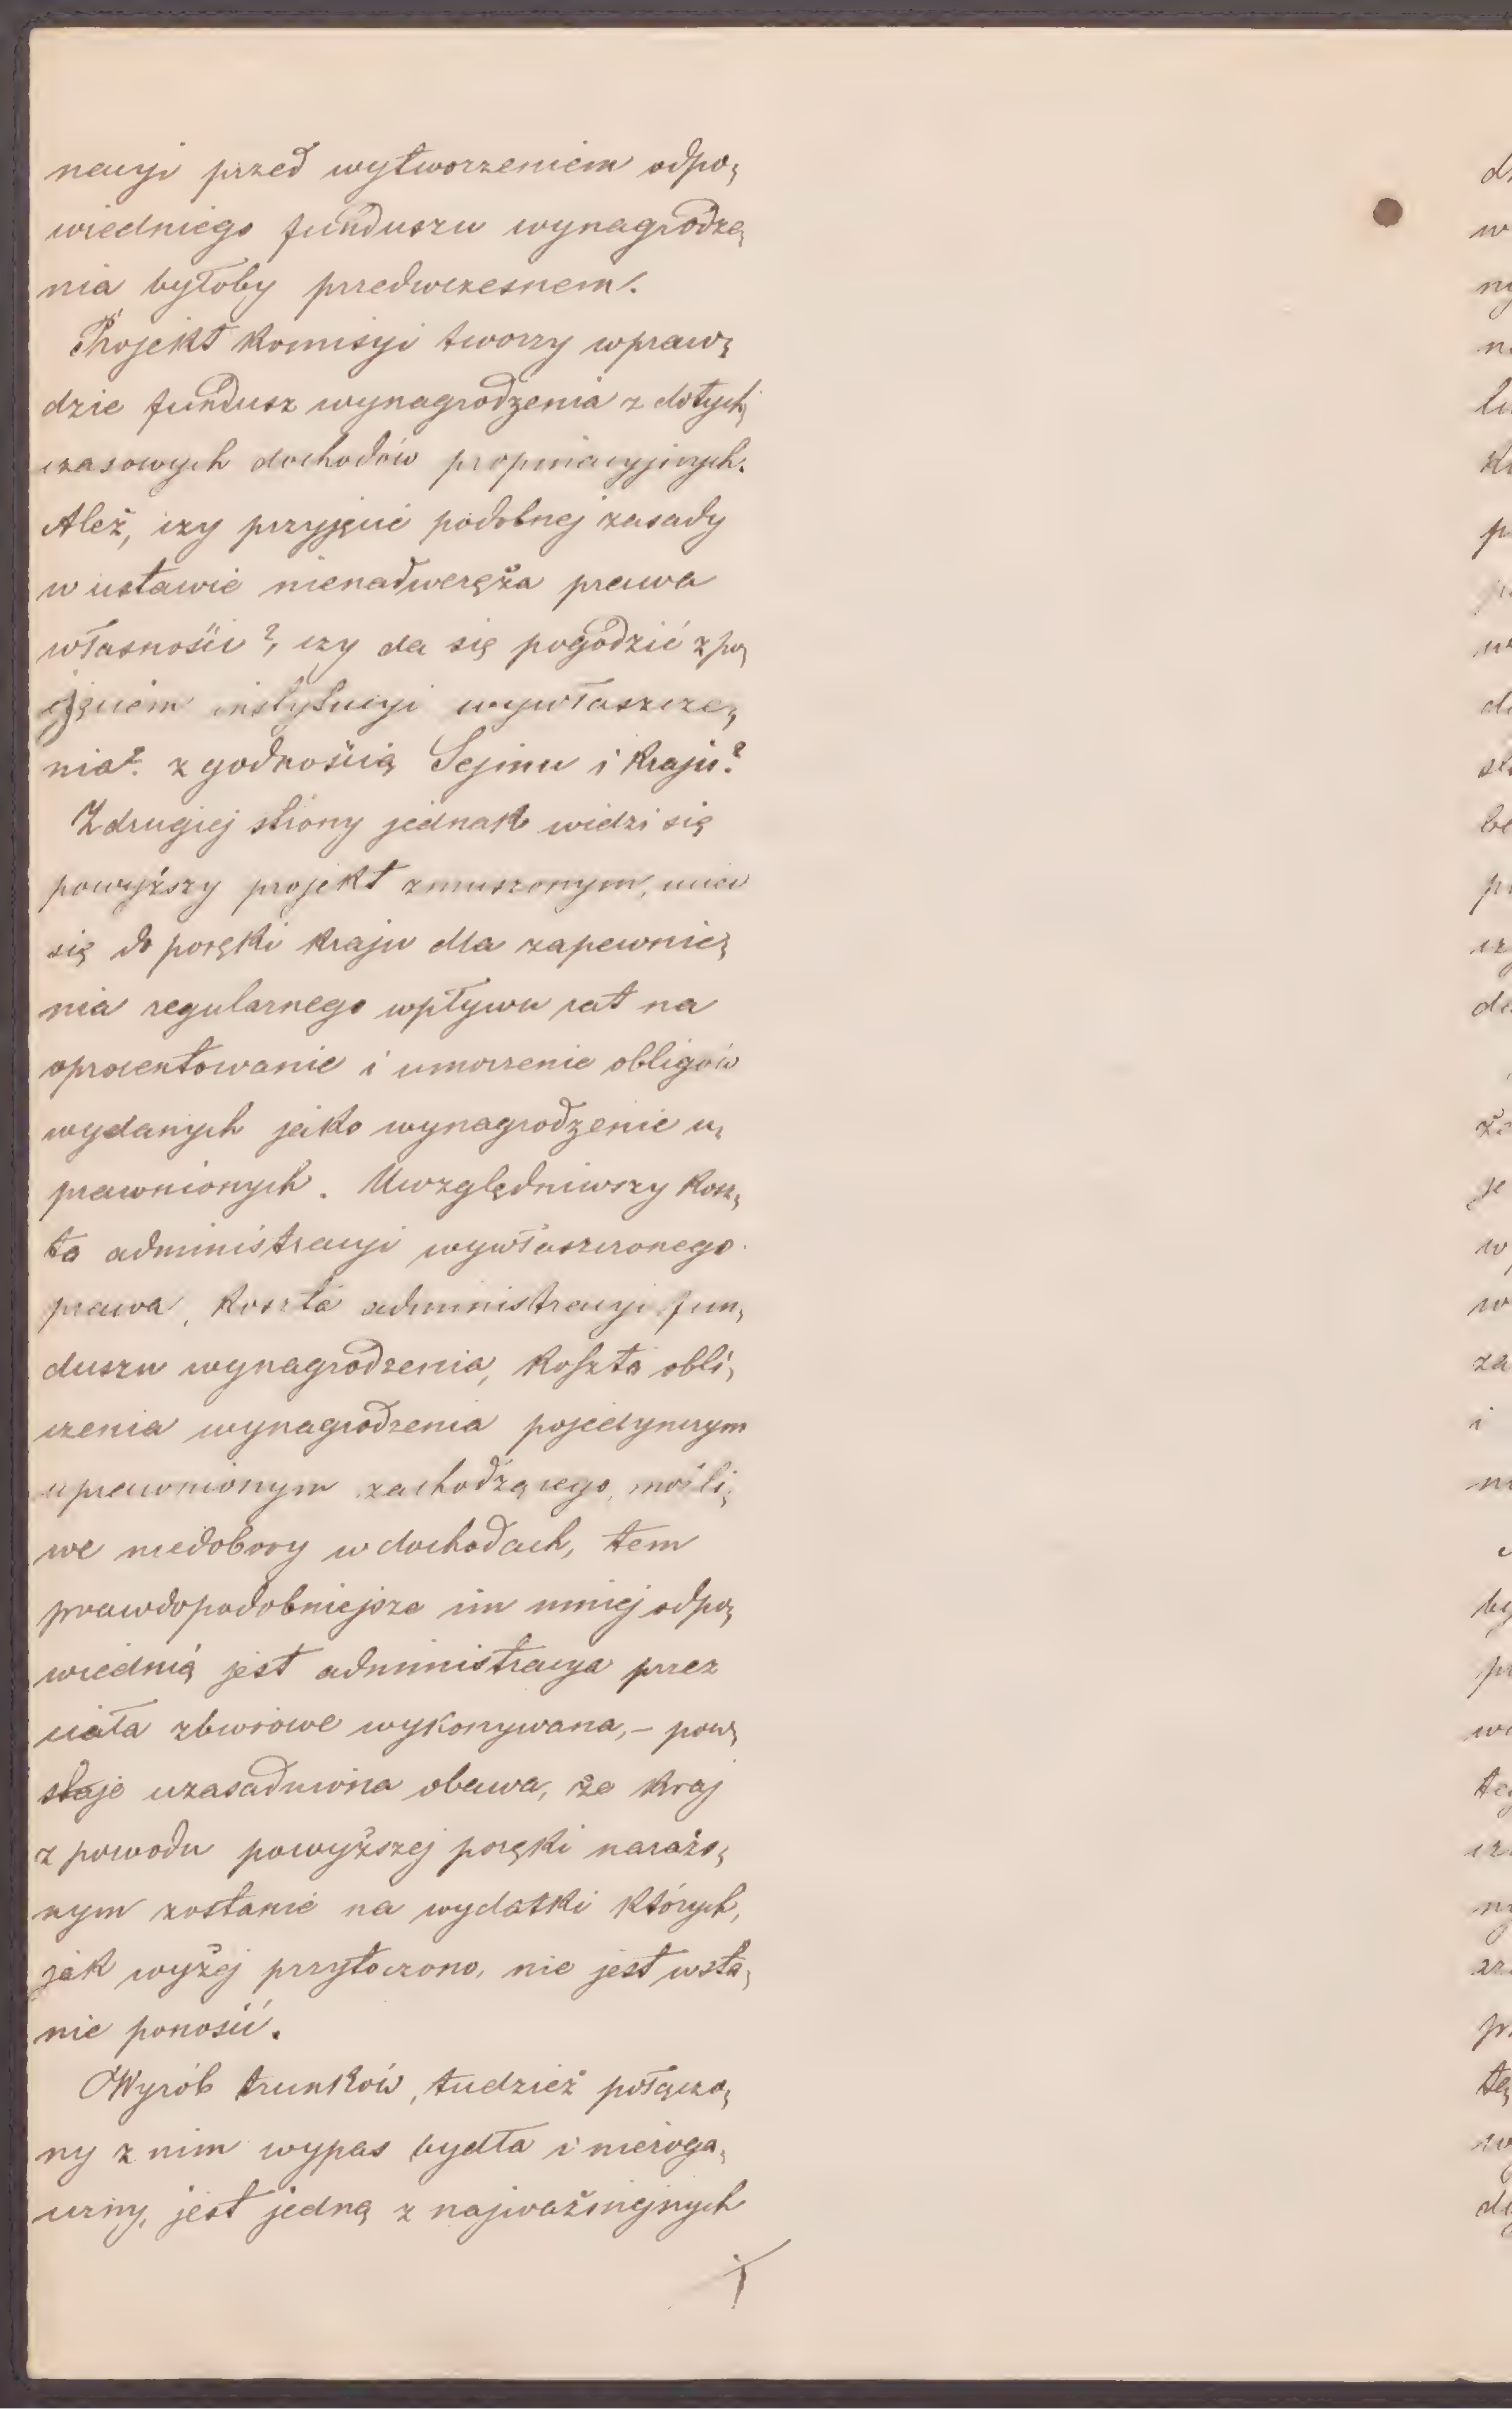 nacyi przed wytworzeniem odpo-
wiedniego funduszu wynagrodze-
nia byłoby przedwczesnem.
Projekt Komisyi tworzy wpraw-
dzie fundusz wynagrodzenia z dotych-
czasowych dochodów propinacyjnych.
Ależ, czy przyjęcie podobnej zasady
w ustawie nienadweręża prawa
własności?, czy da się pogodzić z po-
jęciem instytucyi wywłaszcze-
nia? z godnością Sejmu i Kraju?
Z drugiej strony jednak widzi się
powyższy projekt zmuszonym, uciec
się do poręki Kraju dla zapewnie-
nia regularnego wpływu rat na
oprocentowanie i umorzenie obligów
wydanych jako wynagrodzenie u-
prawnionych. Uwzględniwszy Kosz-
ta administracyi wywłaszczonego
prawa, Koszta administracyi fun-
duszu wynagrodzenia, Koszta obli-
czenia wynagrodzenia pojedynczym
uprawnionym zachodzącego, możli-
we niedobory w dochodach, tem
prawdopodobniejsze im mniej odpo-
wiednią jest administracya przez
ciała zbiorowe wykonywana,- pow-
staje uzasadniona obawa, że Kraj
z powodu powyższej poręki narażo-
nym zostanie na wydatki Których,
jak wyżej przytoczono, nie jest wsta-
nie ponosić.
Wyrób trunków, tudzież połączo-
ny z nim wypas bydła i nieroga-
cizny, jest jedną z najważniejnych